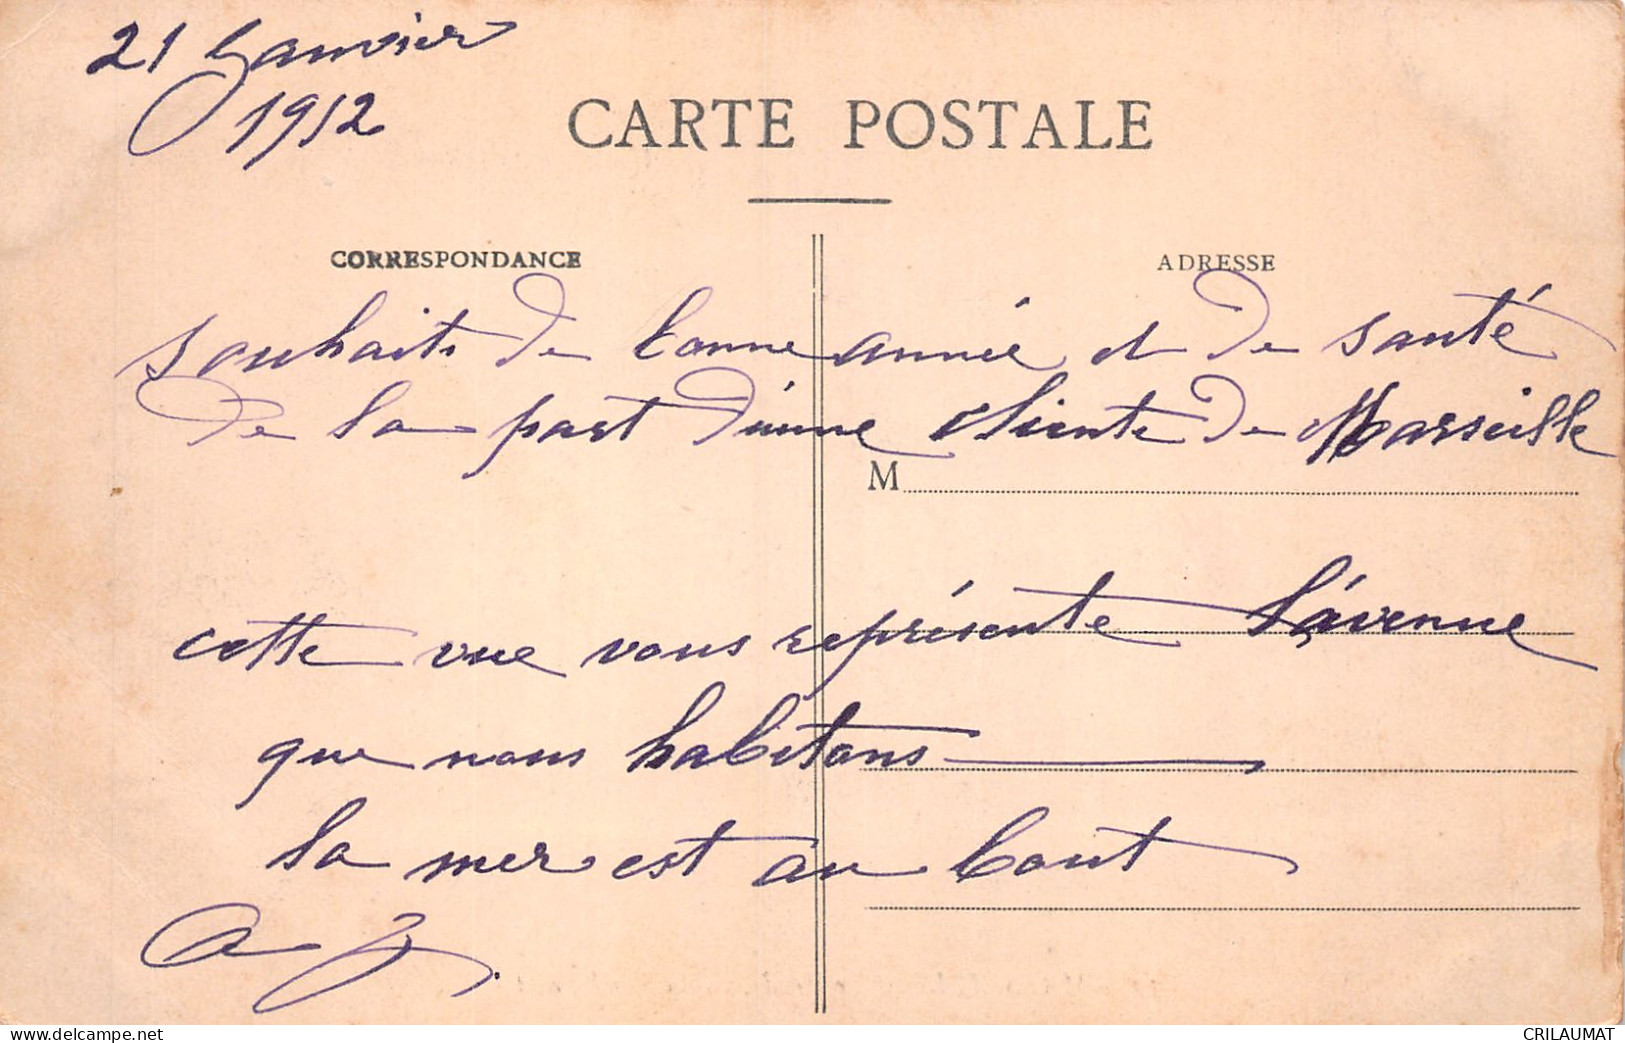 21 Janvier
1912
CARTE POSTALE
CORRESPONDANCE
ADRESSE
souhaits de bonne année et de santé
de la part d'une cliente de Marseille
M
cette vue vous représente l'avenue
que nous habitons
la mer est au bout
www.delcampe.net
CRILAUMAT